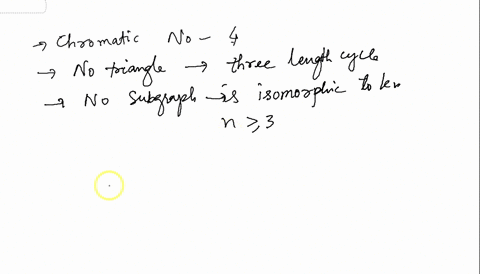 → Chromatic No - 4
→ No triangle → three length cycle
→ No subgraph is isomorphic to kn
n ≥ 3